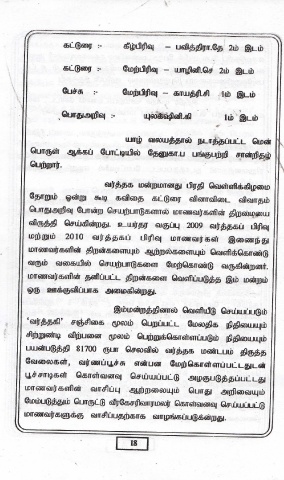 கட்டுரை :- கீழ்பிரிவு – பவித்திரா.தே 2ம் இடம்
கட்டுரை :- மேற்பிரிவு – யாழினி.செ 2ம் இடம்
பேச்சு :- மேற்பிரிவு – காயத்ரி.சி 1ம் இடம்
பொதுஅறிவு :- யுலக்ஷினி.கி 1ம் இடம்
யாழ் வலயத்தால் நடாத்தப்பட்ட மென்
பொருள் ஆக்கப் போட்டியில் தேனுகா.ப பங்குபற்றி சான்றிதழ்
பெற்றார்.
வர்த்தக மன்றமானது பிரதி வெள்ளிக்கிழமை
தோறும் ஒன்று கூடி கவிதை கட்டுரை வினாவிடை விவாதம்
பொதுஅறிவு போன்ற செயற்பாடுகளால் மாணவர்களின் திறமையை
விருத்தி செய்கின்றது. உயர்தர வகுப்பு 2009 வர்த்தகப் பிரிவு
மற்றும் 2010 வர்த்தகப் பிரிவு மாணவர்கள் இணைந்து
மாணவர்களின் திறன்களையும் ஆற்றல்களையும் வெளிக்கொண்டு
வரும் வகையில் செயற்பாடுகளை மேற்கொண்டு வருகின்றனர்.
மாணவர்களின் தனிப்பட்ட திறன்களை வெளிப்படுத்த இம் மன்றம்
ஒரு ஊக்குவிப்பாக அமைகின்றது.
இம்மன்றத்தினால் வெளியீடு செய்யபடும்
'வர்த்தகி' சஞ்சிகை மூலம் பெறப்பட்ட மேலதிக நிதியையும்
சிற்றுண்டி விற்பனை மூலம் பெற்றுக்கொள்ளப்படும் நிதியையும்
பயன்படுத்தி 81700 ரூபா செலவில் வர்த்தக மண்டபம் திருத்த
வேலைகள், வர்ணப்பூச்சு என்பன மேற்கொள்ளப்பட்டதுடன்
பூச்சாடிகள் கொள்வனவு செய்யப்பட்டு அழகுபடுத்தப்பட்டது
மாணவர்களின் வாசிப்பு ஆற்றலையும் பொது அறிவையும்
மேம்படுத்தும் பொருட்டு வீரகேசரிவாரமலர் கொள்வனவு செய்யப்பட்டு
மாணவர்களுக்கு வாசிப்பதற்காக வாழங்கப்படுகின்றது.
18